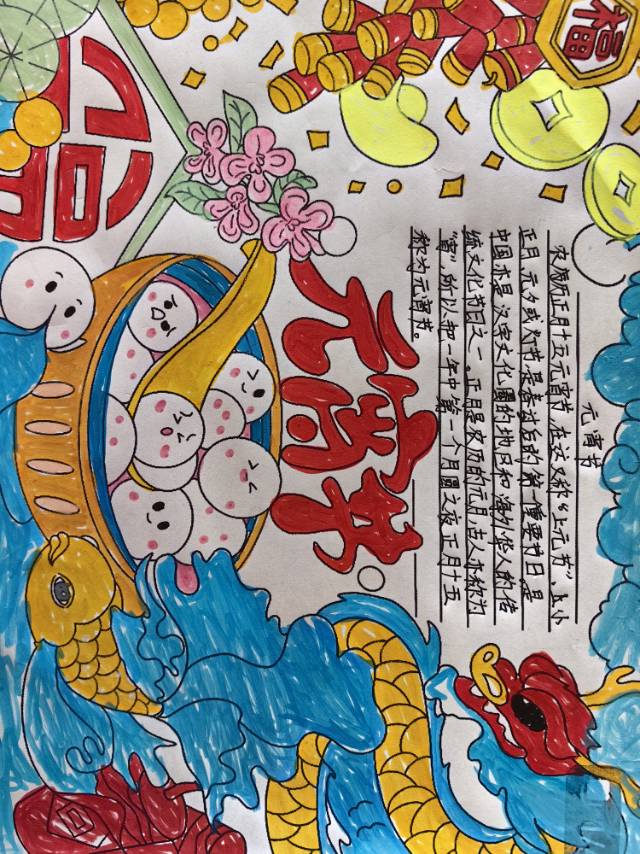 福
元宵节
元宵节
农历正月十五元宵节,在这又称“上元节”,上小
正月、元夕或灯节是春节后的第一個重要节日是
中国亦是汉字文化圈的地区和海外华人的传
统文化节日之一。正月是农历的元月,古人亦称为
“宵”,所以把一年中第一个月圆之夜正月十五
称为元宵节。